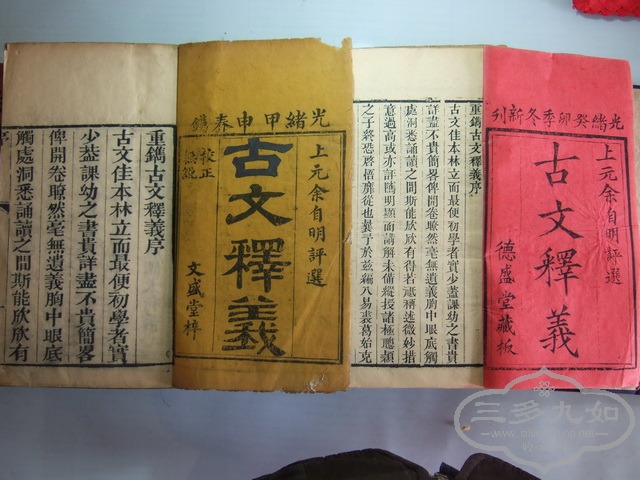 光緒癸卯季冬新刊
上元余自明評選
古文釋義
德盛堂藏板
重鐫古文釋義序
古文佳本林立而最便初學者實少蓋課幼之書貴
詳盡不貴簡畧俾開卷瞭然毫無遺義胸中眼底觸
處洞悉誦讀之間斯能欣欣有得若祗標述微妙措
意過高或亦評隲明顯而講解未備縱投諸極聰穎
之子終恐啓悟靡從也爰予於茲編八易裘葛始克
光緒甲申春鐫
上元余自明評選
古文釋義
校正
無訛
文盛堂梓
重鐫古文釋義序
古文佳本林立而最便初學者實
少蓋課幼之書貴詳盡不貴簡畧
俾開卷瞭然毫無遺義胸中眼底
觸處洞悉誦讀之間斯能欣欣有
序
三多九如